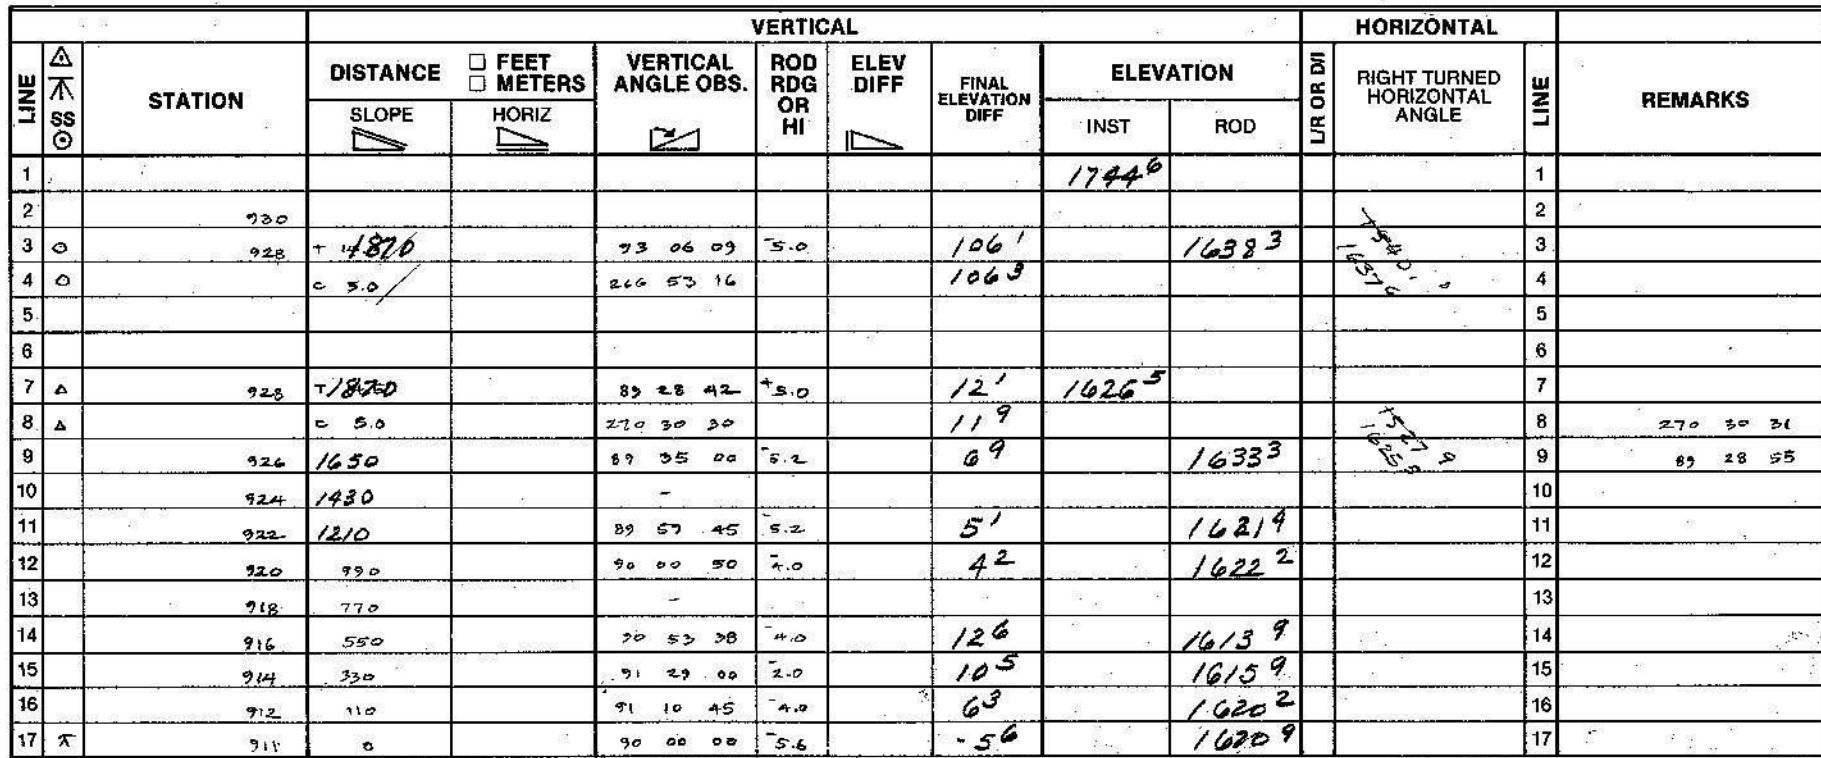 VERTICAL HORIZONTAL
LINE SS STATION DISTANCE □ FEET □ METERS VERTICAL ANGLE OBS. ROD RDG OR HI ELEV DIFF FINAL ELEVATION DIFF ELEVATION L/R OR D/I RIGHT TURNED HORIZONTAL ANGLE LINE REMARKS
SLOPE HORIZ INST ROD
1 1744⁶ 1
2 930 2
3 928 + 1870 93 06 09 -5.0 106¹ 1638³ 3
4 c 5.0 266 53 16 106³ 4
5 5
6 6
7 928 T 1870 89 28 42 +5.0 12¹ 1626⁵ 7
8 c 5.0 270 30 30 11⁹ 8 270 30 31
9 926 1650 89 35 00 -5.2 6⁹ 1633³ 9 89 28 55
10 924 1430 - 10
11 922 1210 89 59 45 -5.2 5¹ 1621⁹ 11
12 920 990 90 00 50 -4.0 4² 1622² 12
13 918 770 - 13
14 916 550 90 53 38 -4.0 12⁶ 1613⁹ 14
15 914 330 91 29 00 -2.0 10⁵ 1615⁹ 15
16 912 110 91 10 45 -4.0 6³ 1620² 16
17 911 0 90 00 00 -5.6 -5⁶ 1620⁹ 17